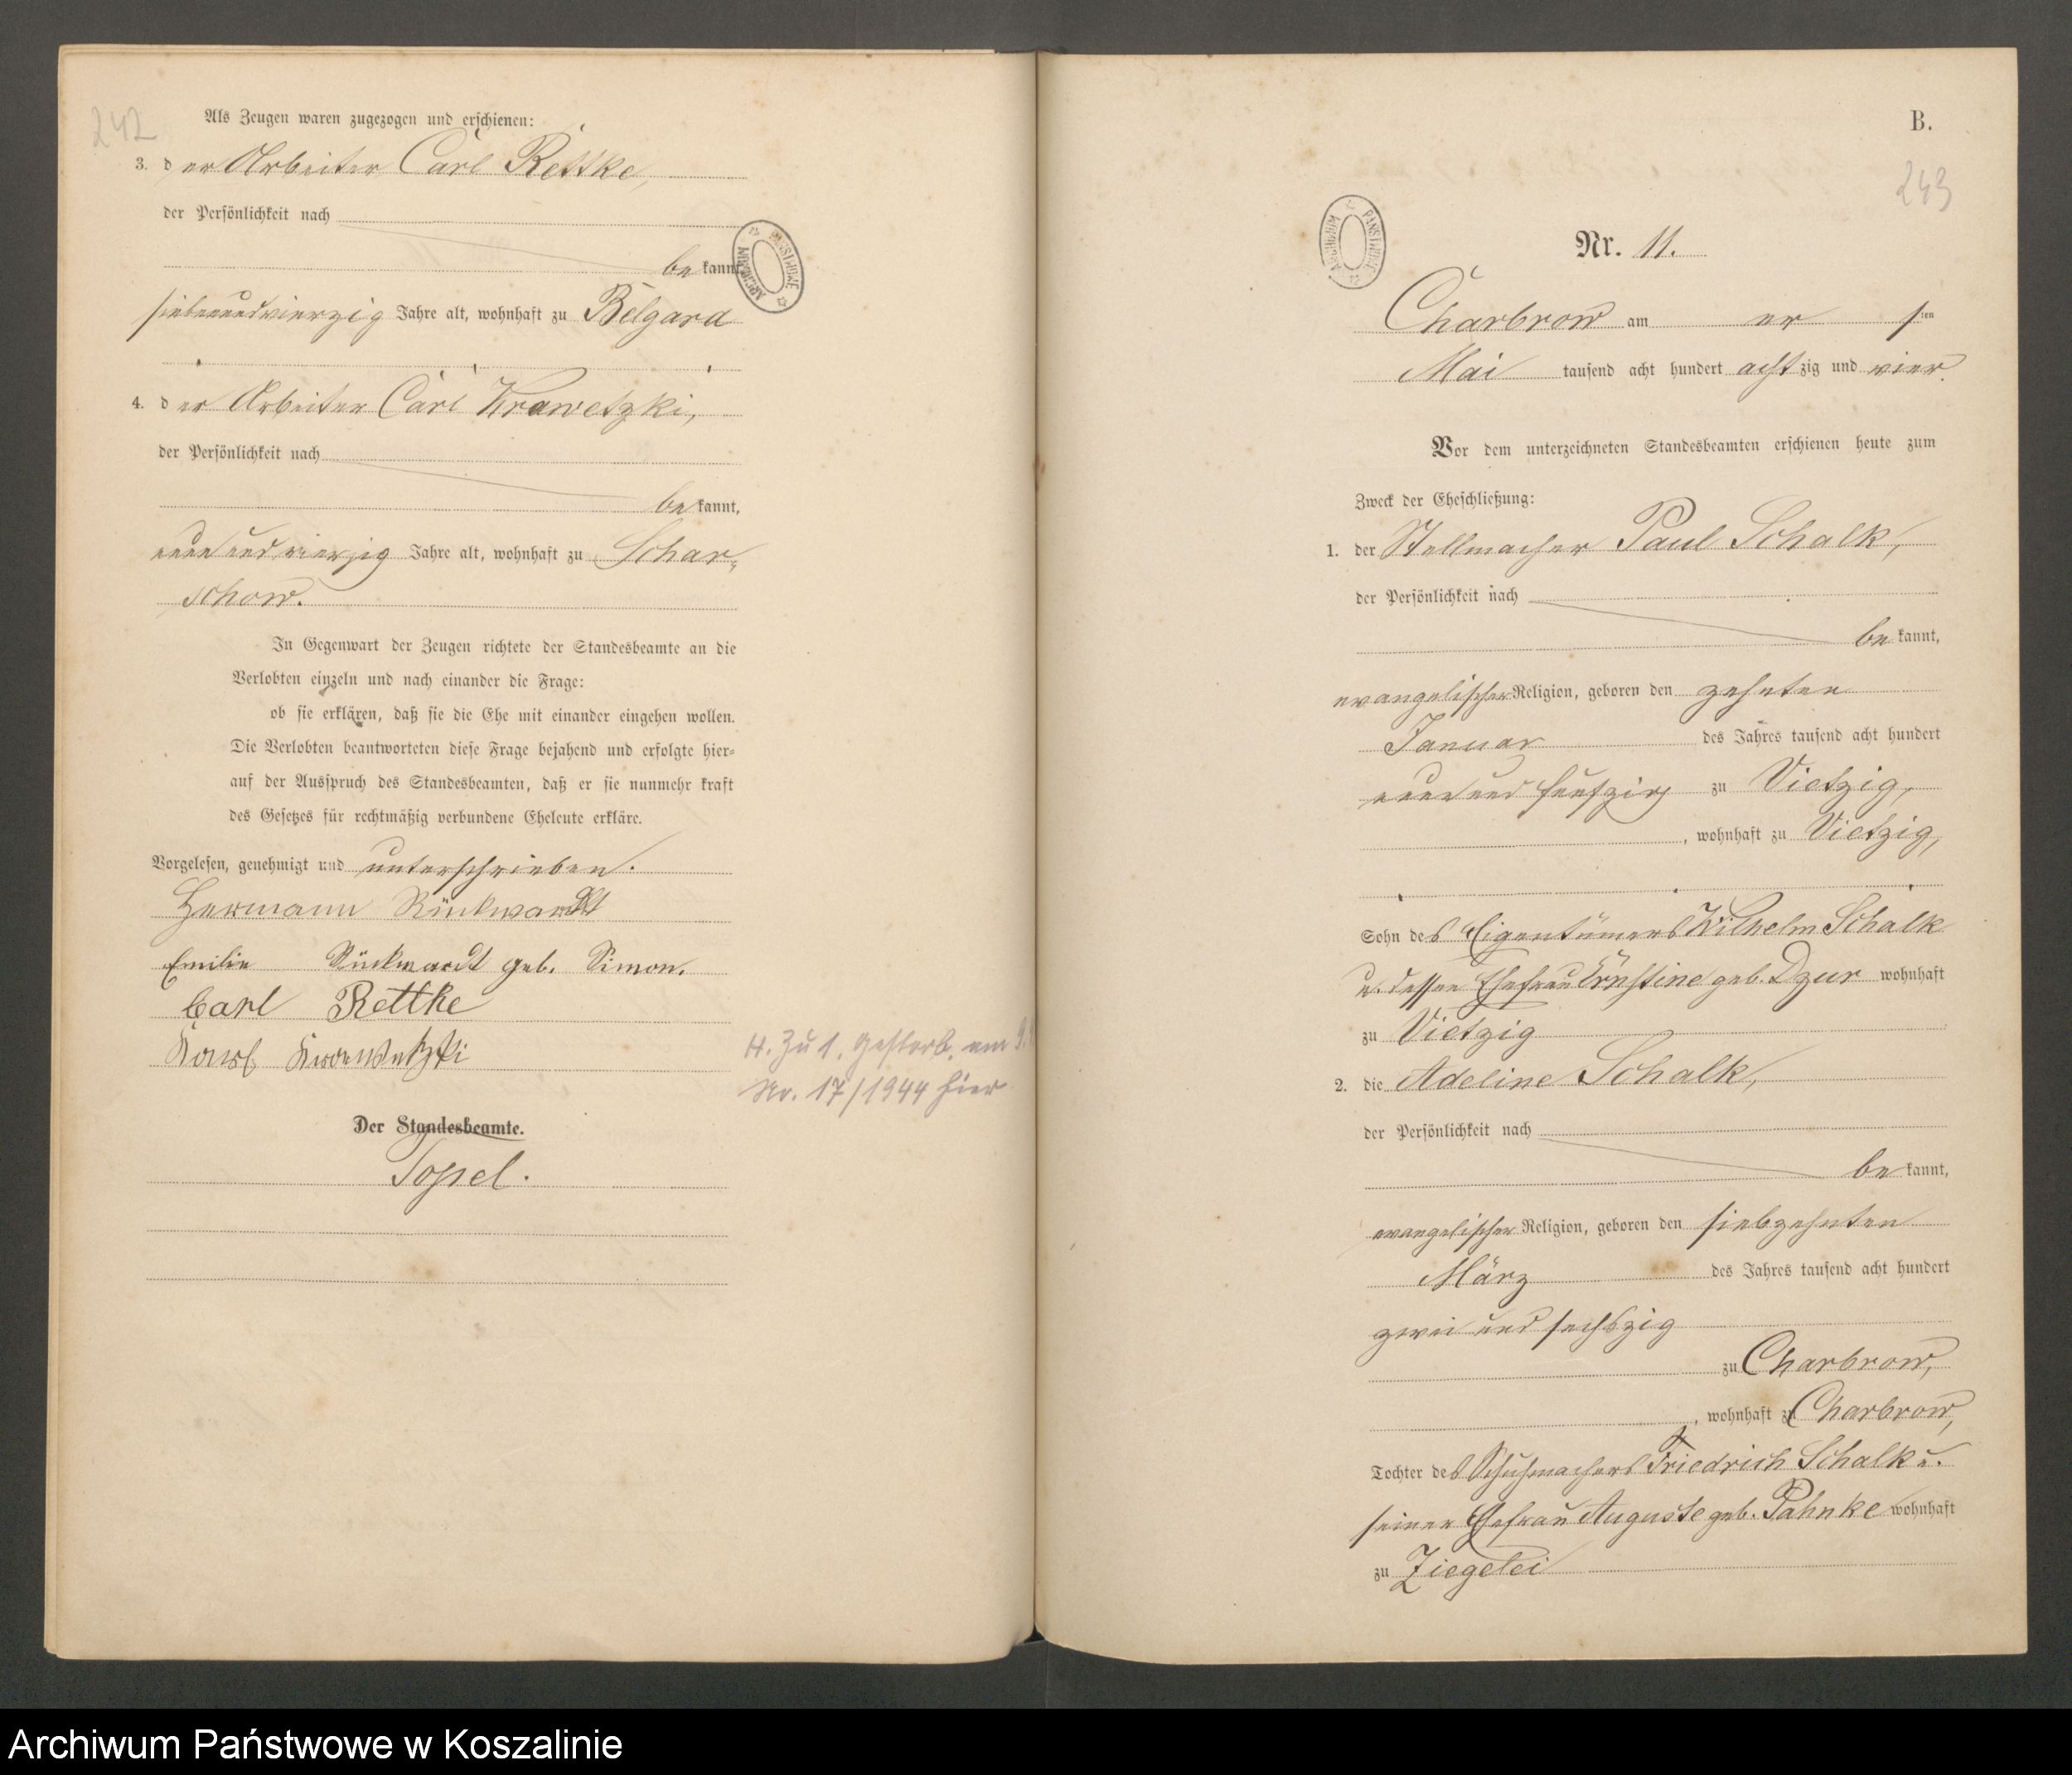 242
Als Zeugen waren zugezogen und erschienen:
3. der Arbeiter Carl Rettke,
der Persönlichkeit nach
bekannt,
siebenundvierzig Jahre alt, wohnhaft zu Belgard
4. der Arbeiter Carl Krawetzki,
der Persönlichkeit nach
bekannt,
neunundvierzig Jahre alt, wohnhaft zu Schar-
schow.
In Gegenwart der Zeugen richtete der Standesbeamte an die
Verlobten einzeln und nach einander die Frage:
ob sie erklären, daß sie die Ehe mit einander eingehen wollen.
Die Verlobten beantworteten diese Frage bejahend und erfolgte hier-
auf der Ausspruch des Standesbeamten, daß er sie nunmehr kraft
des Gesetzes für rechtmäßig verbundene Eheleute erkläre.
Vorgelesen, genehmigt und unterschrieben.
Hermann Rückwardt
Emilie Rückwardt geb. Simon.
Carl Rettke
Karl Krawetzki
H. Zu 1. gestorb. am 9.
Nr. 17/1944 hier
Der Standesbeamte.
Topel.
ARCHIWUM PAŃSTWOWE
B.
243
ARCHIWUM PAŃSTWOWE
Nr. 11.
Charbrow am er sten
Mai tausend acht hundert achtzig und vier.
Vor dem unterzeichneten Standesbeamten erschienen heute zum
Zweck der Eheschließung:
1. der Stellmacher Paul Schalk,
der Persönlichkeit nach
bekannt,
evangelischer Religion, geboren den zehnten
Januar des Jahres tausend acht hundert
neunundfunfzig zu Vietzig,
, wohnhaft zu Vietzig,
Sohn des Eigentümers Wilhelm Schalk
u. dessen Ehefrau Ernstine geb. Dzur wohnhaft
zu Vietzig
2. die Adeline Schalk,
der Persönlichkeit nach
bekannt,
evangelischer Religion, geboren den siebzehnten
März des Jahres tausend acht hundert
zwei und sechszig
zu Charbrow,
, wohnhaft zu Charbrow,
Tochter des Schuhmachers Friedrich Schalk u.
seiner Ehefrau Auguste geb. Pahnke wohnhaft
zu Ziegelei
Archiwum Państwowe w Koszalinie